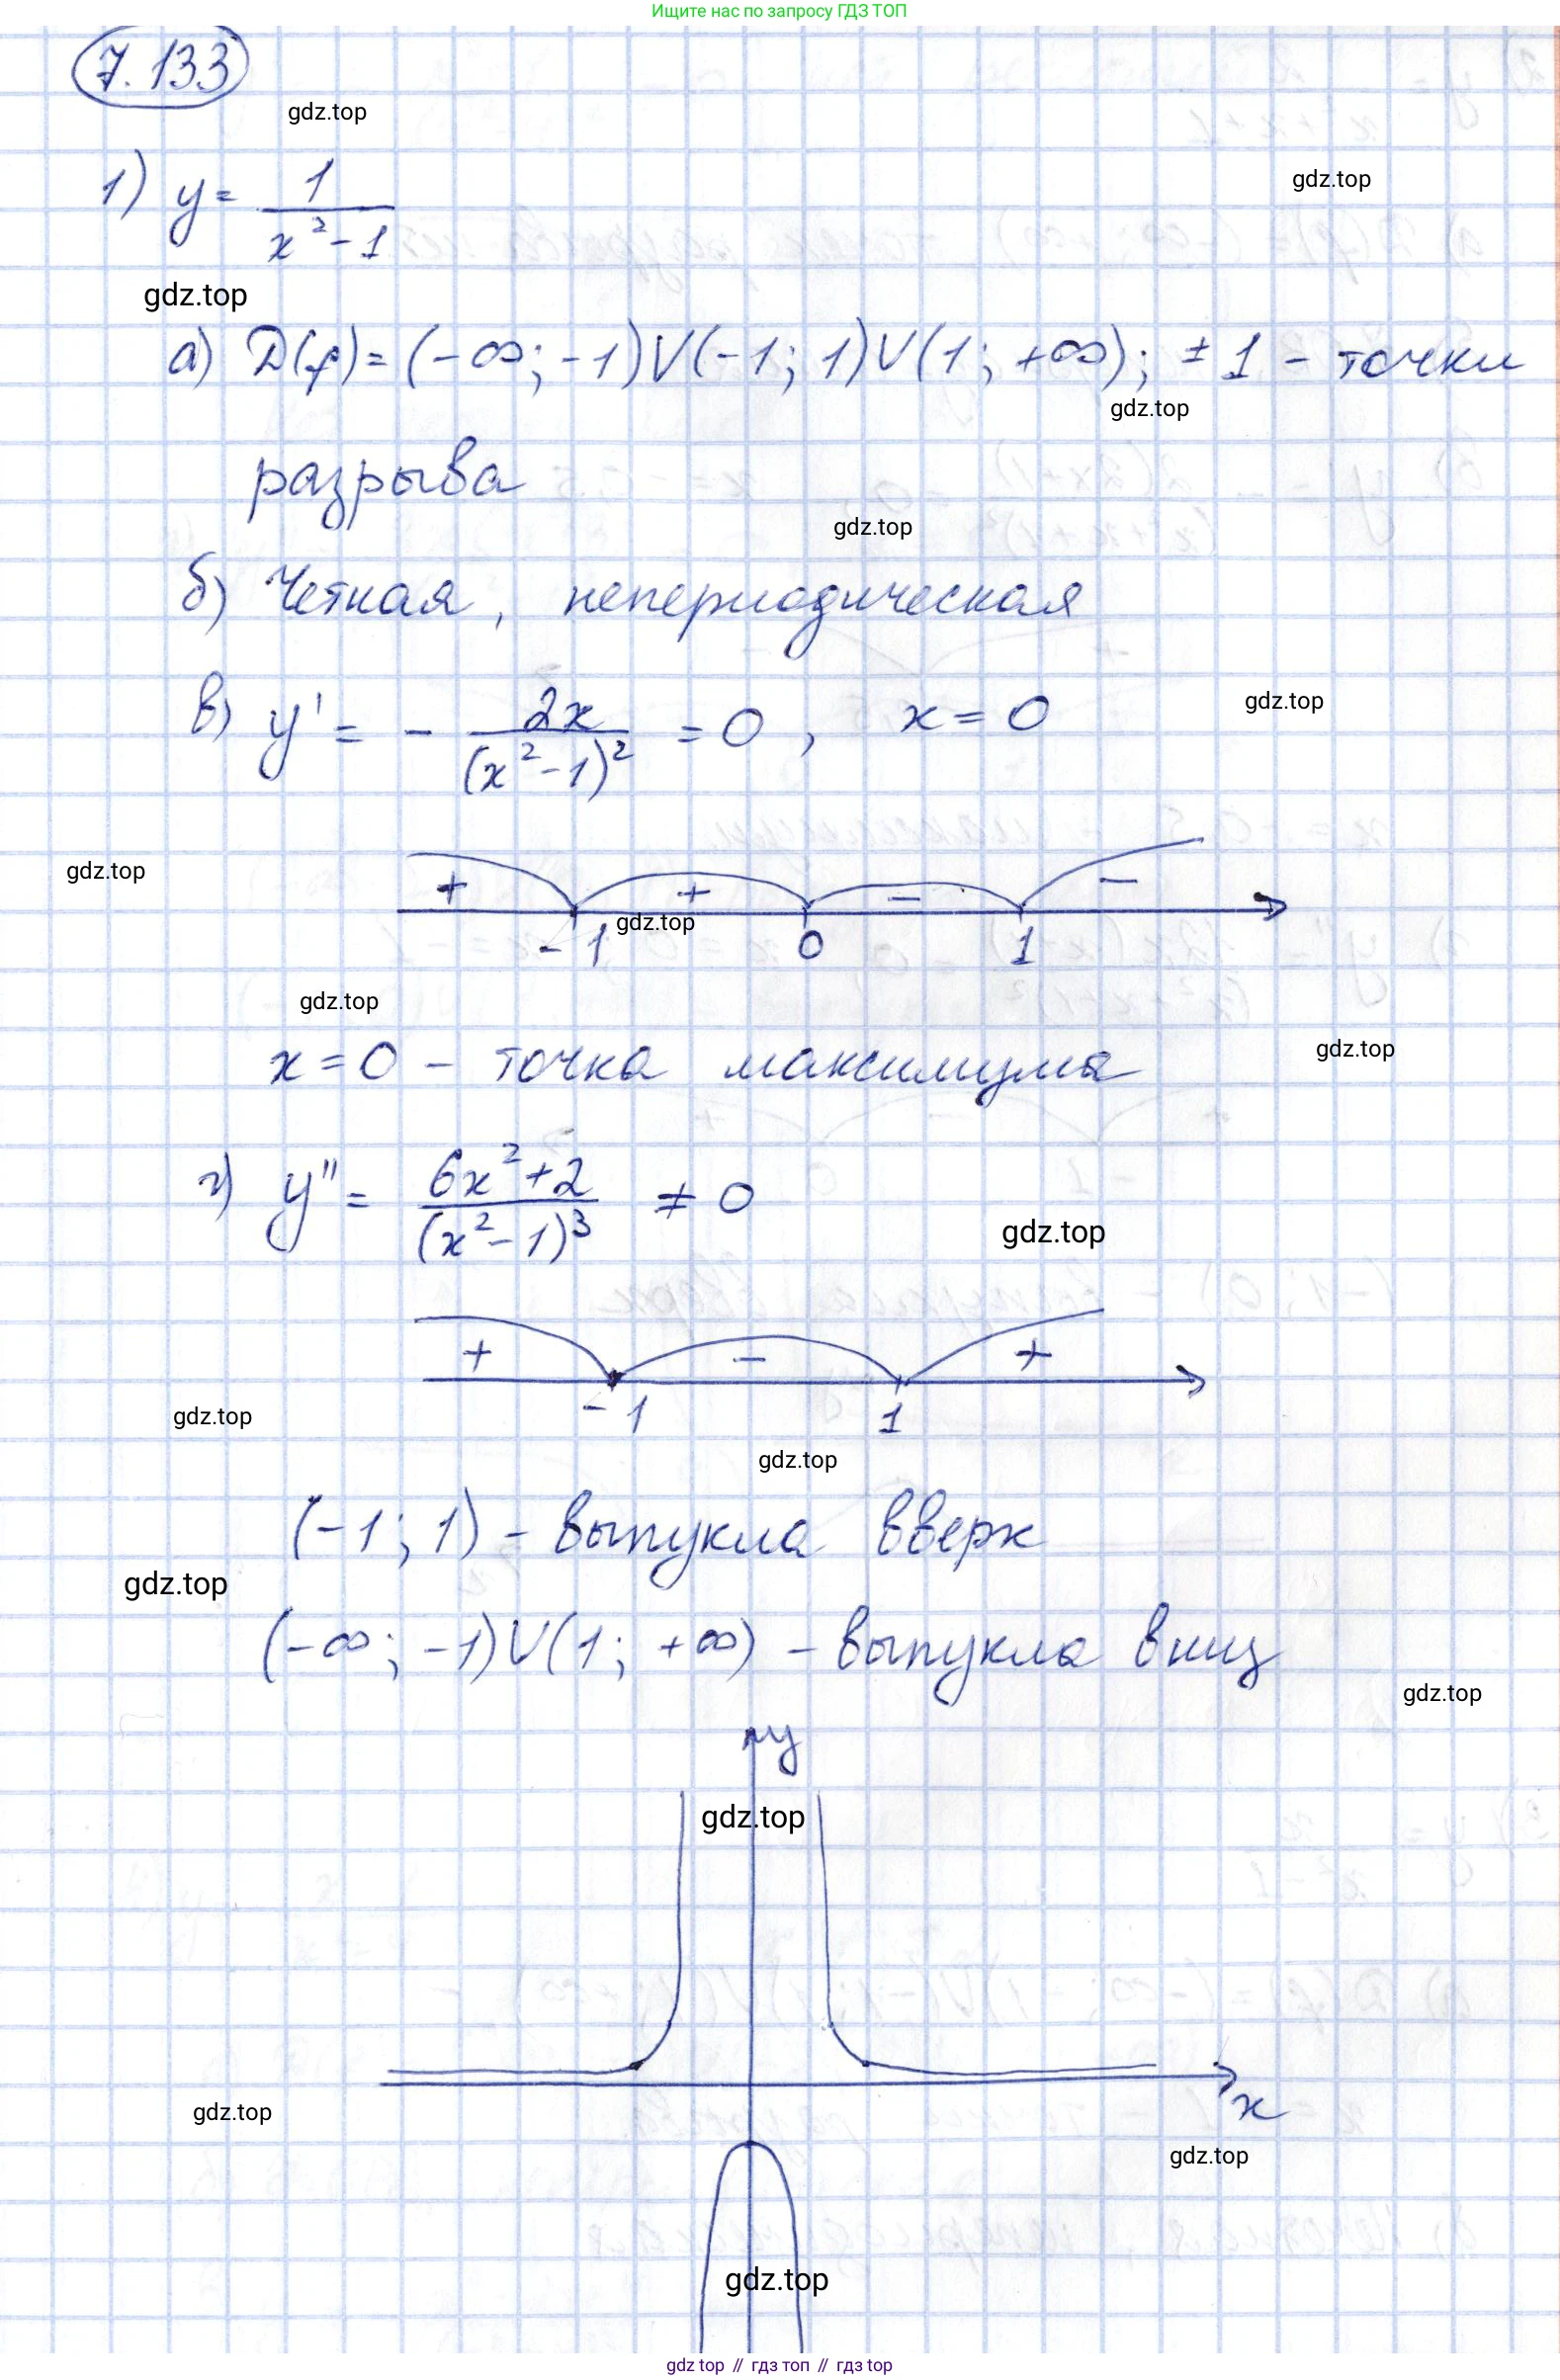 Ищите нас по запросу ГДЗ ТОП
7.133
gdz.top
1) y = 1/(x² - 1)
gdz.top
gdz.top
а) D(f) = (-∞; -1)V(-1; 1)V(1; +∞); ± 1 - точки
gdz.top
разрыва
gdz.top
б) Четная, непериодическая
в) y' = - 2x/(x² - 1)² = 0, x = 0
gdz.top
gdz.top
+ + - -
-1 0 1
gdz.top
gdz.top
x = 0 - точка максимума
gdz.top
г) y'' = (6x² + 2)/(x² - 1)³ ≠ 0
gdz.top
+ - +
-1 1
gdz.top
gdz.top
(-1; 1) - выпукла вверх
gdz.top
(-∞; -1)V(1; +∞) - выпукла вниз
gdz.top
y
gdz.top
x
gdz.top
gdz.top
gdz.top
gdz top // гдз топ // гдз top